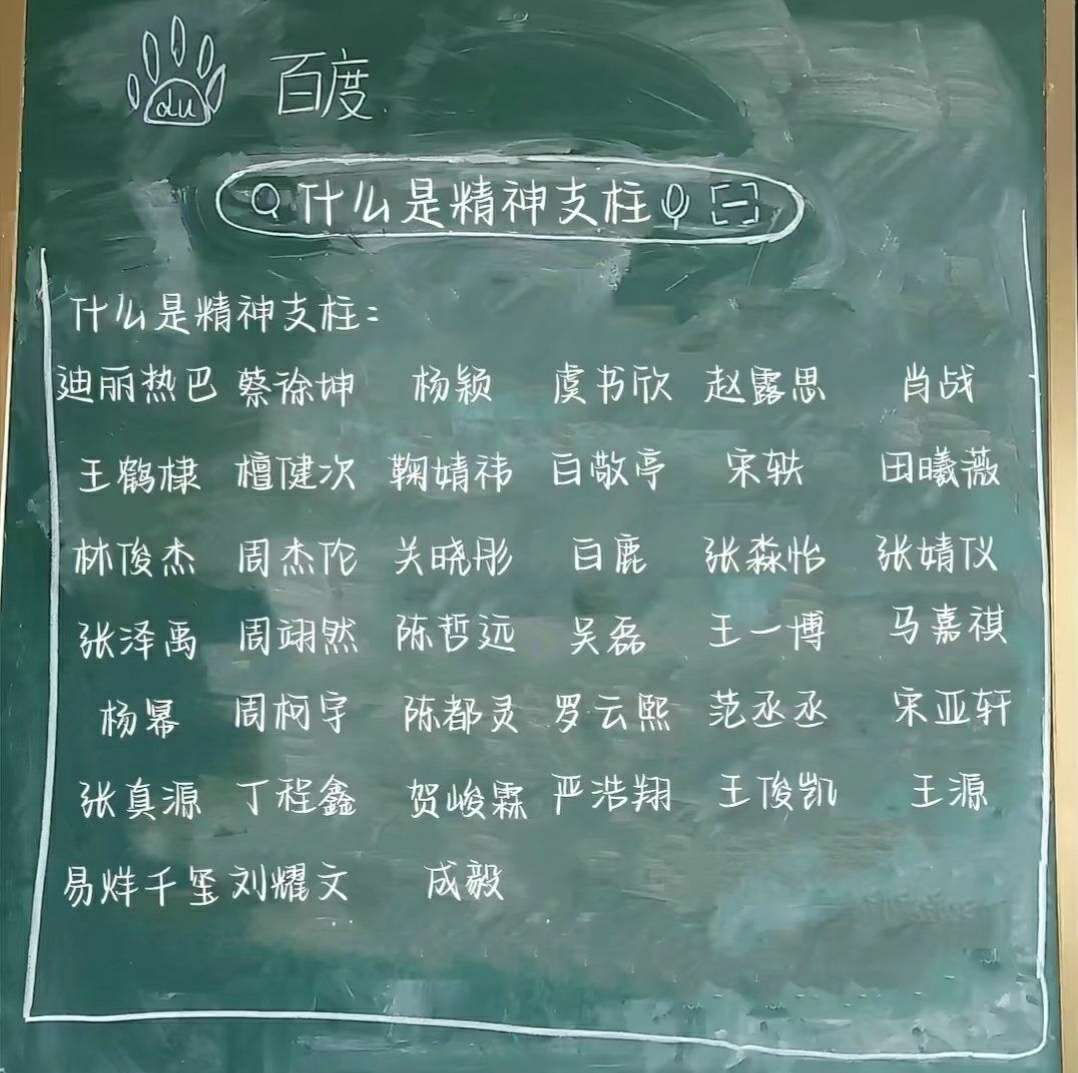 du 百度
什么是精神支柱
什么是精神支柱:
迪丽热巴 蔡徐坤 杨颖 虞书欣 赵露思 肖战
王鹤棣 檀健次 鞠婧祎 白敬亭 宋轶 田曦薇
林俊杰 周杰伦 关晓彤 白鹿 张淼怡 张婧仪
张泽禹 周翊然 陈哲远 吴磊 王一博 马嘉祺
杨幂 周柯宇 陈都灵 罗云熙 范丞丞 宋亚轩
张真源 丁程鑫 贺峻霖 严浩翔 王俊凯 王源
易烊千玺 刘耀文 成毅